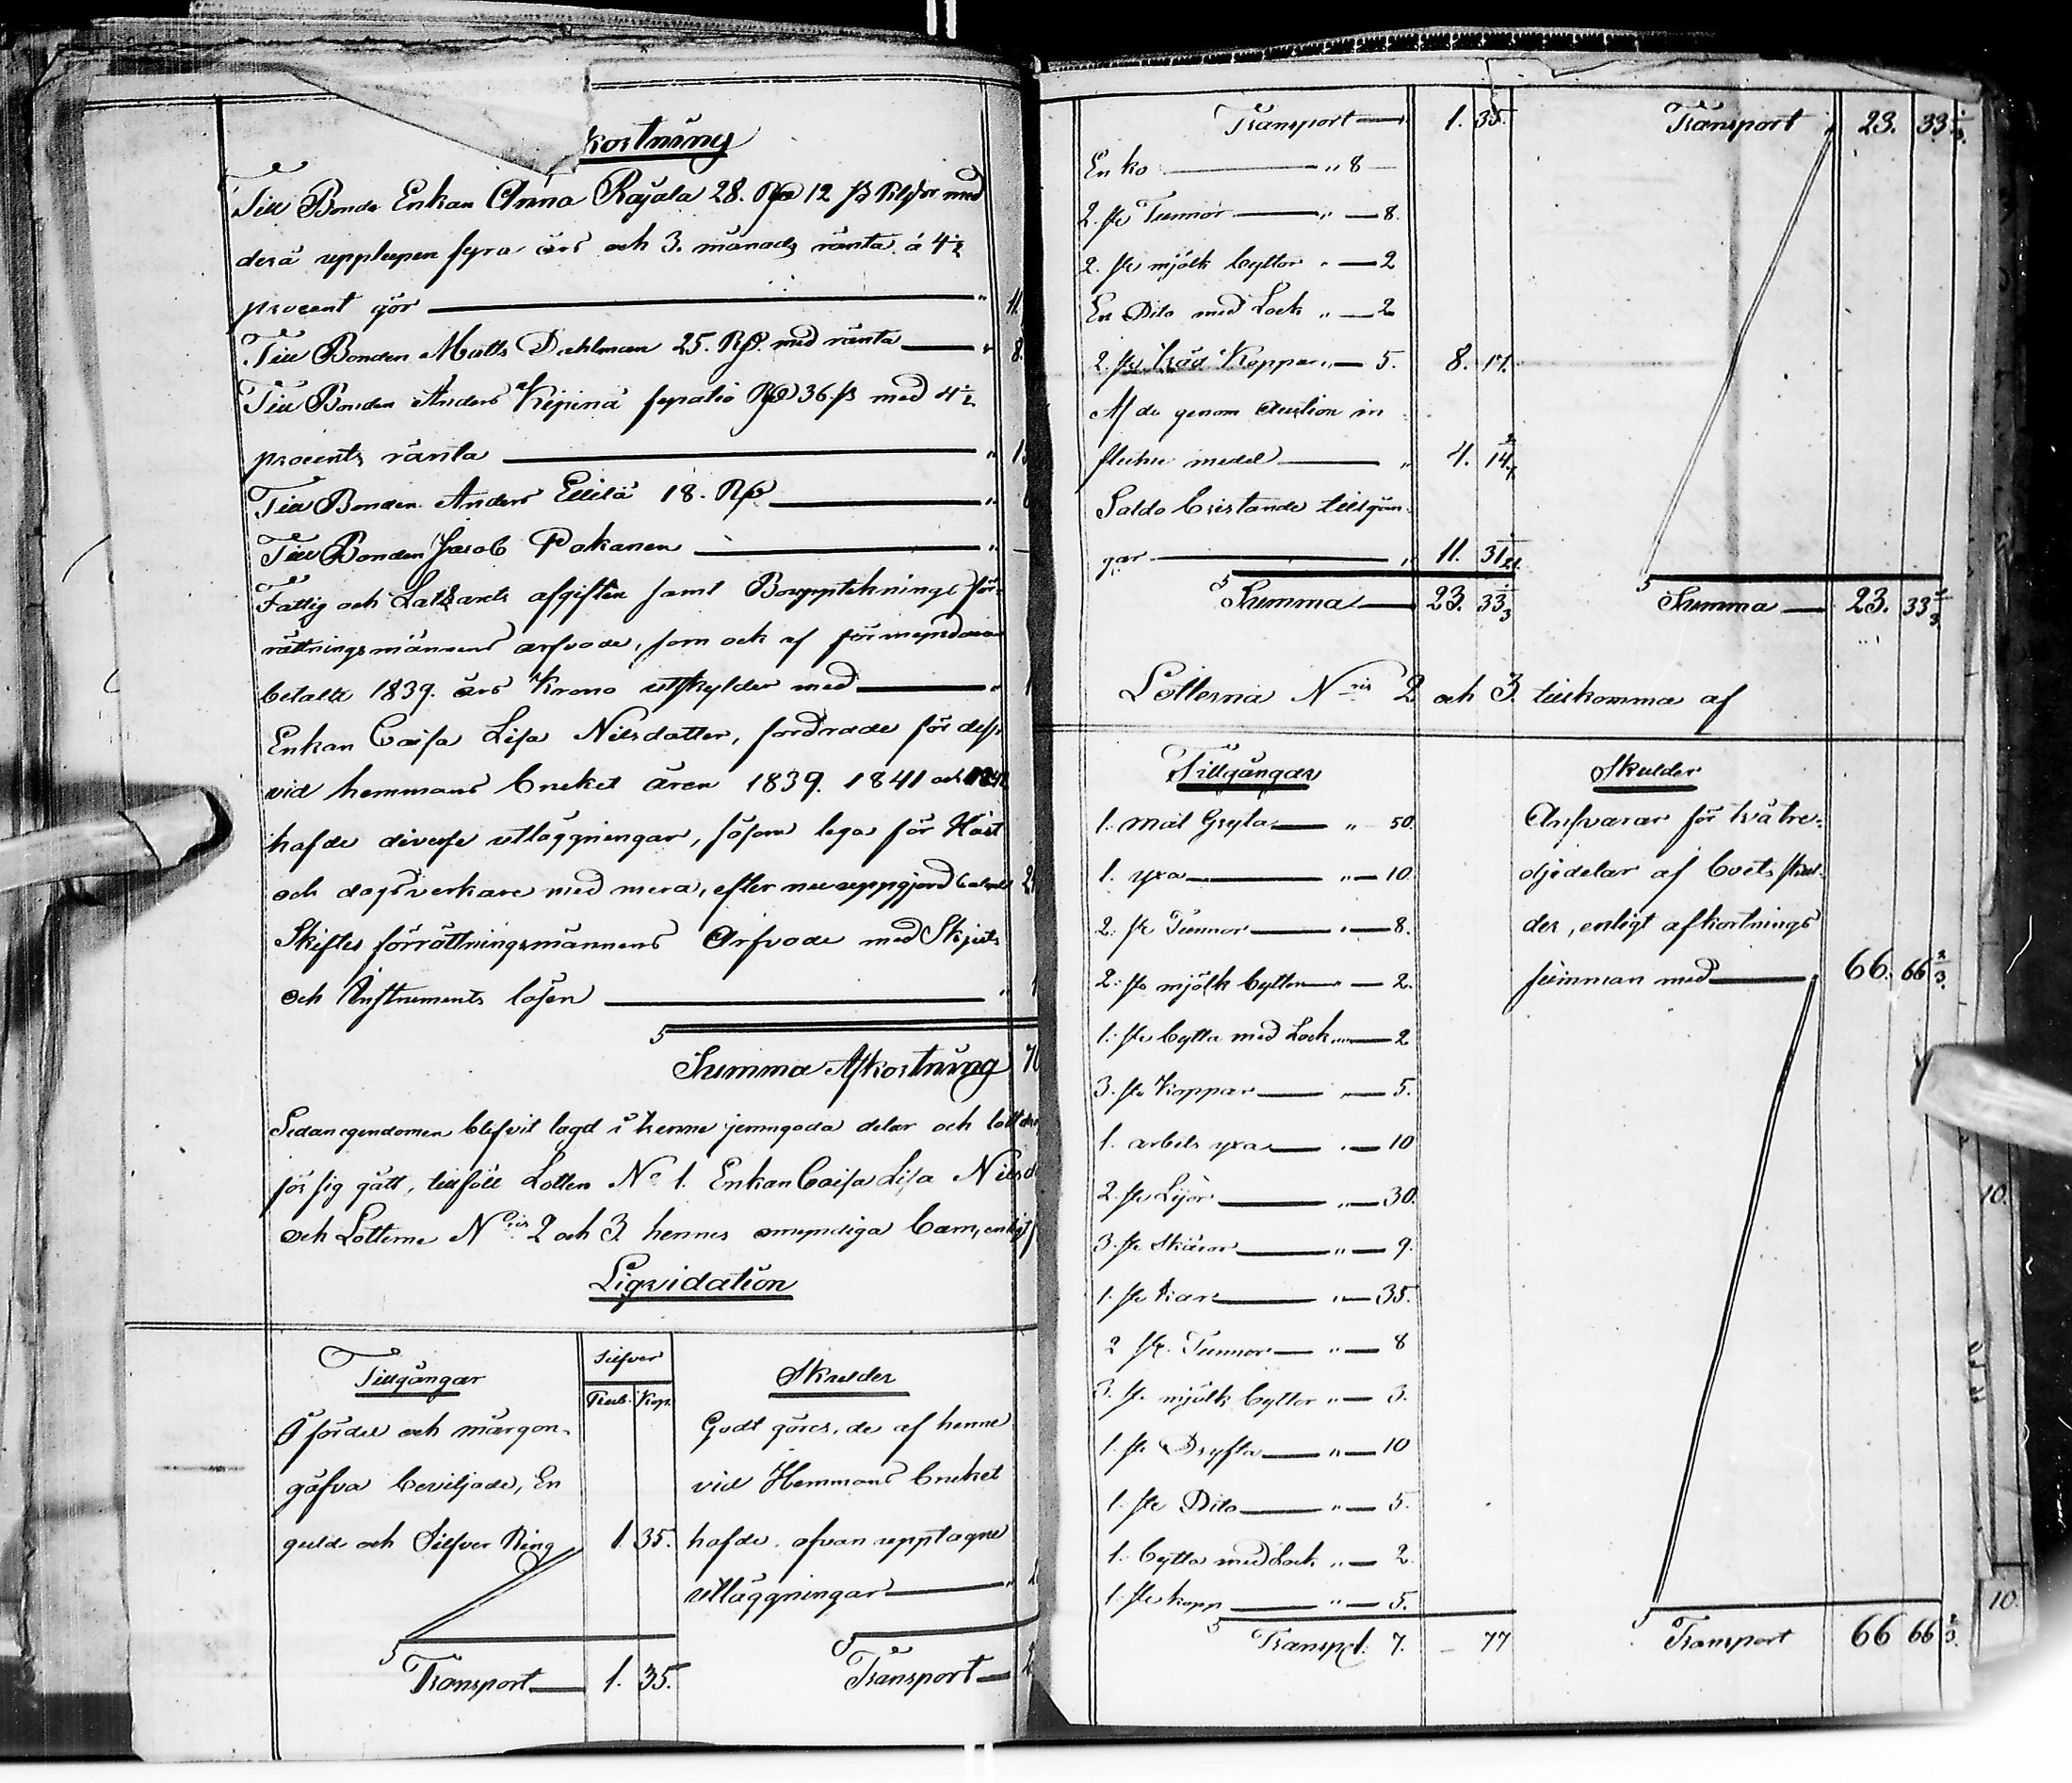 kortning
Till Bonde Enkan Anna Rajala 28. Rd 12 s Rilgs med
derå upplupen fyra års och 3. månads ränta á 4½
procent gör — " 11
Till Bonden Matts Dahlman 25. Rd. med ränta — " 8.
Till Bonden Anders Kipinä sexatio Rd 36 s med 4½
procents ränta — " 1
Till Bonden Anders Eillilä 18. Rd — "
Till Bonden Jacob Pakanen — " —
Fattig och Lazarets afgiften samt Boupptecknings för-
rättningsmännens arfvode, som och af förmyndaren
betalte 1839. års Krono utskylder med — " 1
Enkan Caisa Lisa Nilsdotter, fordrade för dess
vid hemmans bruket åren 1839. 1841 och 1842
hafde diverse utläggningar, såsom lega för Häst
och dagsverkare med mera, efter nu uppgjord 2
Skiftes förrättningsmännens Arfvode med Skjuts
och Instruments lösen — " 1
Summa Afkortning 70
Sedan egendomen blifvit lagd i trenne jemngoda delar och lott
för sig gått, tillföll Lotten No 1. Enkan Caisa Lisa Nilsd
och Lotterne N:ris 2 och 3 hennes omyndiga barn, enligt
Liqvidation
Tillgångar Silfver Skulder
Rub. Kop.
I fördel och morgon-
gåfva beviljade, En
guld och Silfver Ring 1 35.
Transport — 1. 35.
Godt göres, de af henne
vid Hemmans bruket
hafde, ofvan upptagne
utläggningar — "
Transport — 2
Transport — 1. 35. Transport " 23. 33⅓.
En ko — " 8 —
2. st Tunnor — " — 8.
2. st mjölk byttor " — 2
En Dito med Lock " — 2
2. st träd Koppar " — 5. 8. 17.
Af de genom Auction in
flutne medel — " 4. 14 2/7
Saldo bristande tillgån-
gar — " 11. 31 1/21.
Summa — 23. 33⅓ Summa — 23. 33⅓
Lotterna N:ris 2 och 3. tillkomma af
Tillgångar Skulder
1. mal Gryta — " 50.
1. yxa — " — 10.
2. st Tunnor — " — 8.
2. st mjölk byttor — " — 2.
1. st bytta med Lock " — 2
3. st Koppar — " — 5.
1. arbets yxa — " — 10
2. st Lijor — " — 30.
3. st Skäror — " — 9.
1. st kar — " — 35.
2 st. Tunnor — " — 8
3. st. mjölk byttor " — 3.
1. st Dryfta — " — 10
1. st Dito — " — 5.
1. bytta med Lock " — 2.
1. st kopp — " — 5.
Transpt. 7. — 77
Ansvarar för två tre-
djedelar af boets skul-
der, enligt afkortnings
summan med — 66. 66⅔.
Transport 66 66⅔.
10.
10.